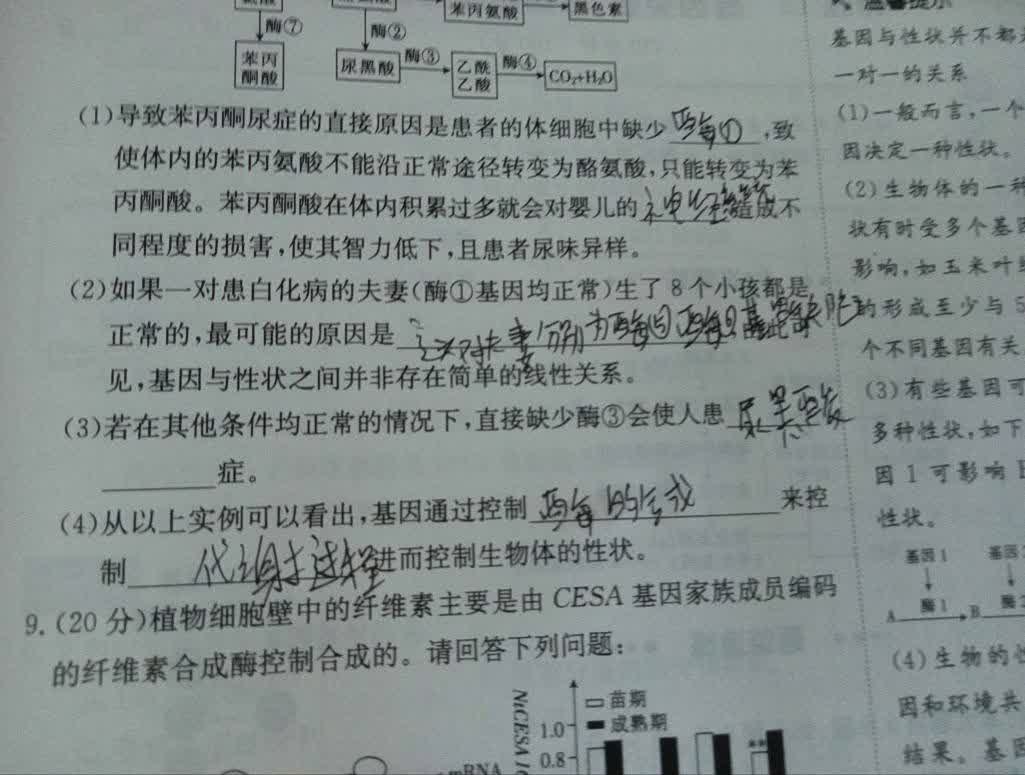 苯丙氨酸
黑色素
酶⑦
酶②
苯丙
酮酸
尿黑酸
酶③
乙酰
乙酸
酶④
CO₂+H₂O
(1)导致苯丙酮尿症的直接原因是患者的体细胞中缺少 酶① ,致
使体内的苯丙氨酸不能沿正常途径转变为酪氨酸,只能转变为苯
丙酮酸。苯丙酮酸在体内积累过多就会对婴儿的 神经系统 造成不
同程度的损害,使其智力低下,且患者尿味异样。
(2)如果一对患白化病的夫妻(酶①基因均正常)生了8个小孩都是
正常的,最可能的原因是
见,基因与性状之间并非存在简单的线性关系。
(3)若在其他条件均正常的情况下,直接缺少酶③会使人患 尿黑酸
症。
(4)从以上实例可以看出,基因通过控制 酶的合成 来控
制 代谢过程 进而控制生物体的性状。
9.(20分)植物细胞壁中的纤维素主要是由CESA基因家族成员编码
的纤维素合成酶控制合成的。请回答下列问题:
苗期
成熟期
1.0
0.8
**
mRNA
基因与性状并不都
一对一的关系
(1)一般而言,一个
因决定一种性状。
(2)生物体的一种
状有时受多个基因
影响,如玉米叶
的形成至少与5
个不同基因有关
(3)有些基因可
多种性状,如下
因1可影响
性状。
基因1
酶1
A
B
(4)生物的性
因和环境共
结果。基因